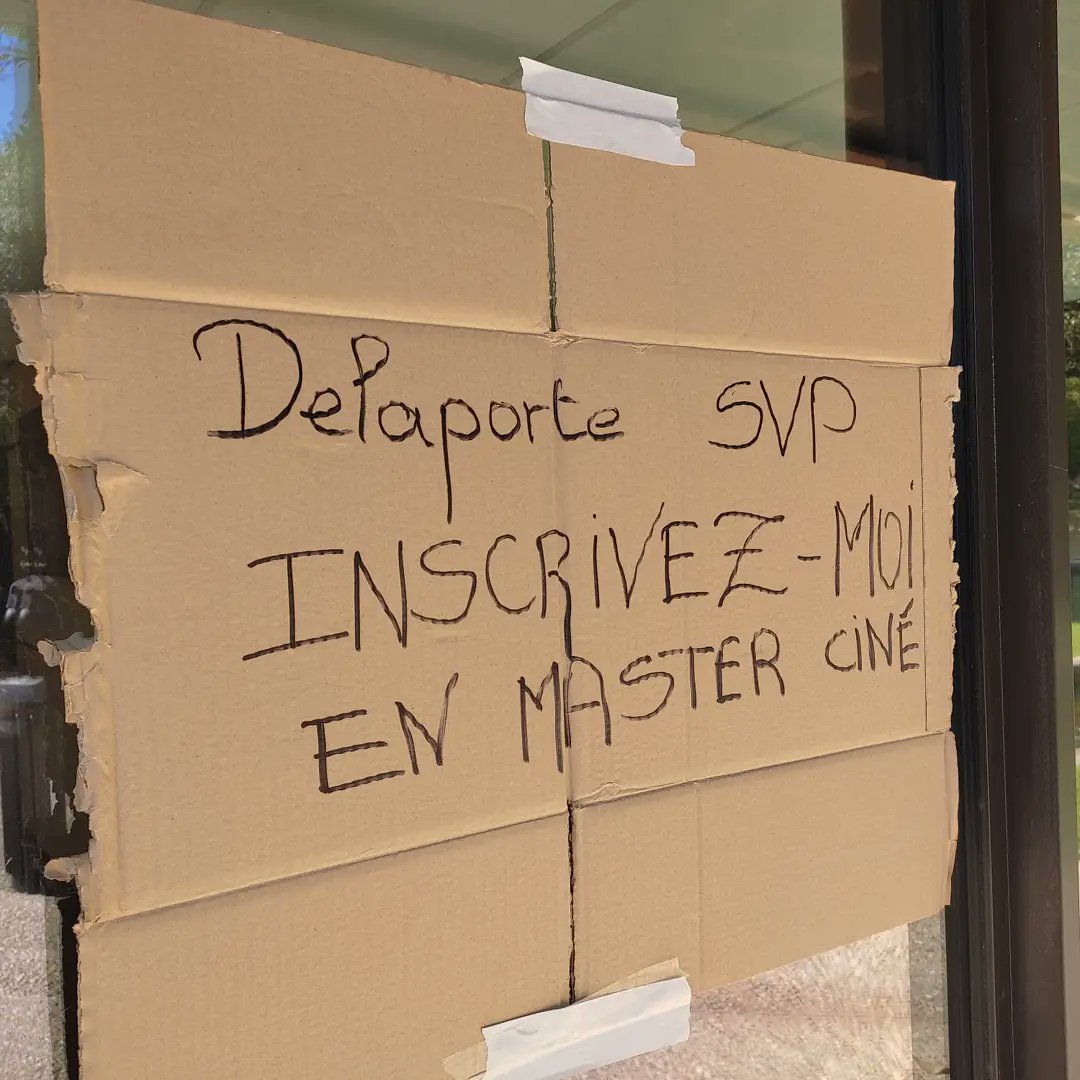 Delaporte SVP
INSCRIVEZ-MOI
EN MASTER CINÉ